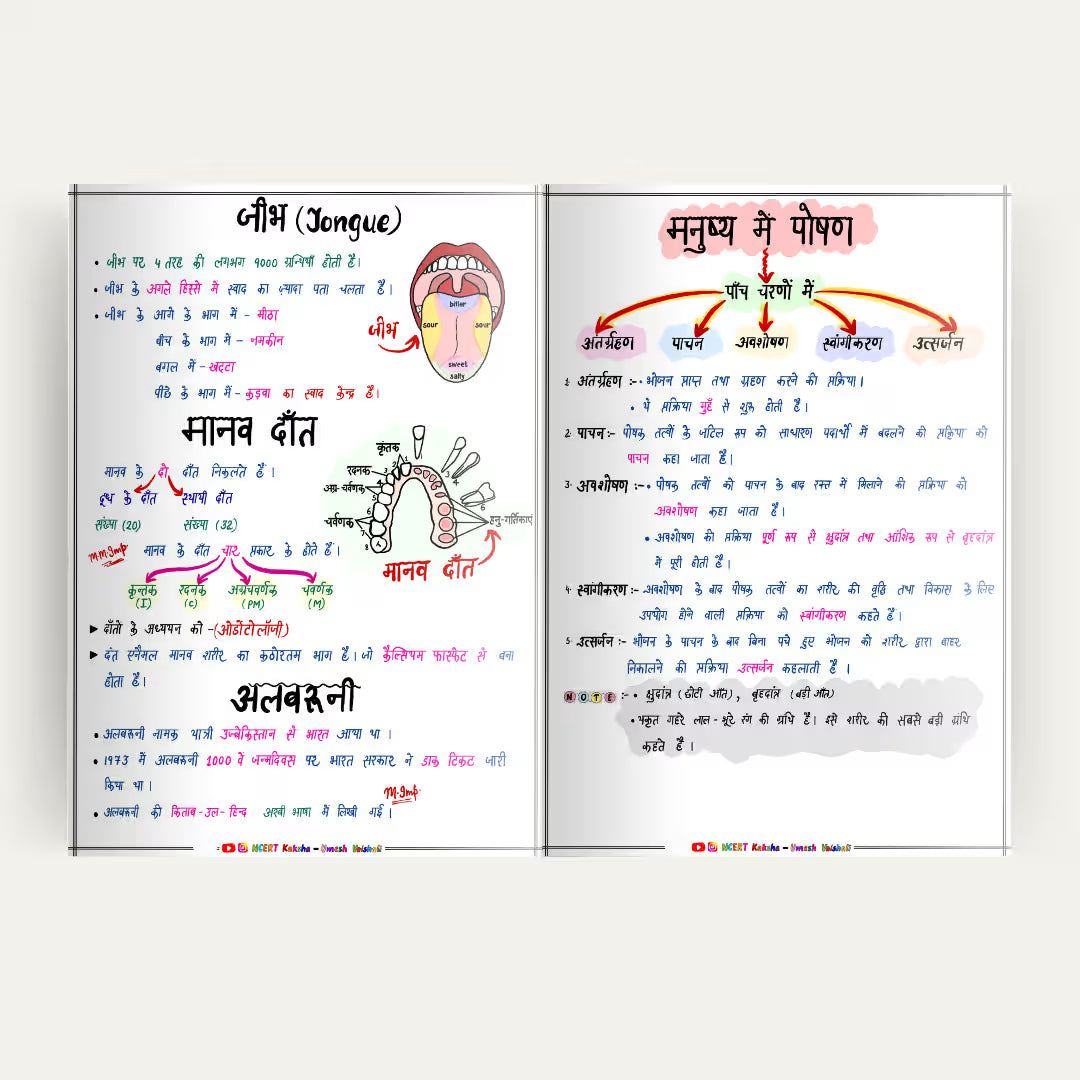 जीभ (Tongue)
• जीभ पर 4 तरह की लगभग 9000 ग्रन्थियाँ होती है।
• जीभ के अगले हिस्से में स्वाद का ज्यादा पता चलता है।
• जीभ के आगे के भाग में - मीठा
बीच के भाग में - नमकीन
बगल में - खट्टा
पीछे के भाग में - कुड़वा का स्वाद केन्द्र है।
जीभ
bitter
sour
sour
sweet
salty
मानव दाँत
मानव के दो दाँत निकलते हैं।
दूध के दाँत स्थायी दाँत
संख्या (20) संख्या (32)
M.M.Imp मानव के दाँत चार प्रकार के होते हैं।
कृन्तक रदनक अग्रचवर्णक चवर्णक
(I) (C) (PM) (M)
कृंतक
रदनक
अग्र-चवर्णक
चर्वणक
हनु-गर्तिकाएं
1
2
3
4
5
6
7
8
4
6
मानव दाँत
▶ दाँतों के अध्ययन को -(ओडोंटोलॉजी)
▶ दंत एनैमल मानव शरीर का कठोरतम भाग है। जो कैल्सियम फास्फेट से बना
होता है।
अलबरूनी
• अलबरूनी नामक यात्री उज्बेकिस्तान से भारत आया था।
• 1973 में अलबरूनी 1000 वें जन्मदिवस पर भारत सरकार ने डाक टिकट जारी
किया था।
M.Imp.
• अलबरूनी की किताब-उल-हिन्द अरबी भाषा में लिखी गई।
NCERT Kaksha - Umesh Vaishali
मनुष्य में पोषण
पाँच चरणों में
अंतर्ग्रहण पाचन अवशोषण स्वांगीकरण उत्सर्जन
1. अंतर्ग्रहण :- • भोजन प्राप्त तथा ग्रहण करने की प्रक्रिया।
• ये प्रक्रिया मुहँ से शुरू होती है।
2. पाचन :- पोषक तत्वों के जटिल रूप को साधारण पदार्थों में बदलने की प्रक्रिया को
पाचन कहा जाता है।
3. अवशोषण :- • पोषक तत्वों को पाचन के बाद रक्त में मिलाने की प्रक्रिया को
अवशोषण कहा जाता है।
• अवशोषण की प्रक्रिया पूर्ण रूप से क्षुद्रांत्र तथा आंशिक रूप से वृहदांत्र
में पूरी होती है।
4. स्वांगीकरण :- अवशोषण के बाद पोषक तत्वों का शरीर की वृद्धि तथा विकास के लिए
उपयोग होने वाली प्रक्रिया को स्वांगीकरण कहते हैं।
5. उत्सर्जन :- भोजन के पाचन के बाद बिना पचे हुए भोजन को शरीर द्वारा बाहर
निकालने की प्रक्रिया उत्सर्जन कहलाती है।
NOTE :- • क्षुद्रांत्र (छोटी आँत), वृहदांत्र (बड़ी आँत)
• यकृत गहरे लाल-भूरे रंग की ग्रंथि है। इसे शरीर की सबसे बड़ी ग्रंथि
कहते हैं।
NCERT Kaksha - Umesh Vaishali